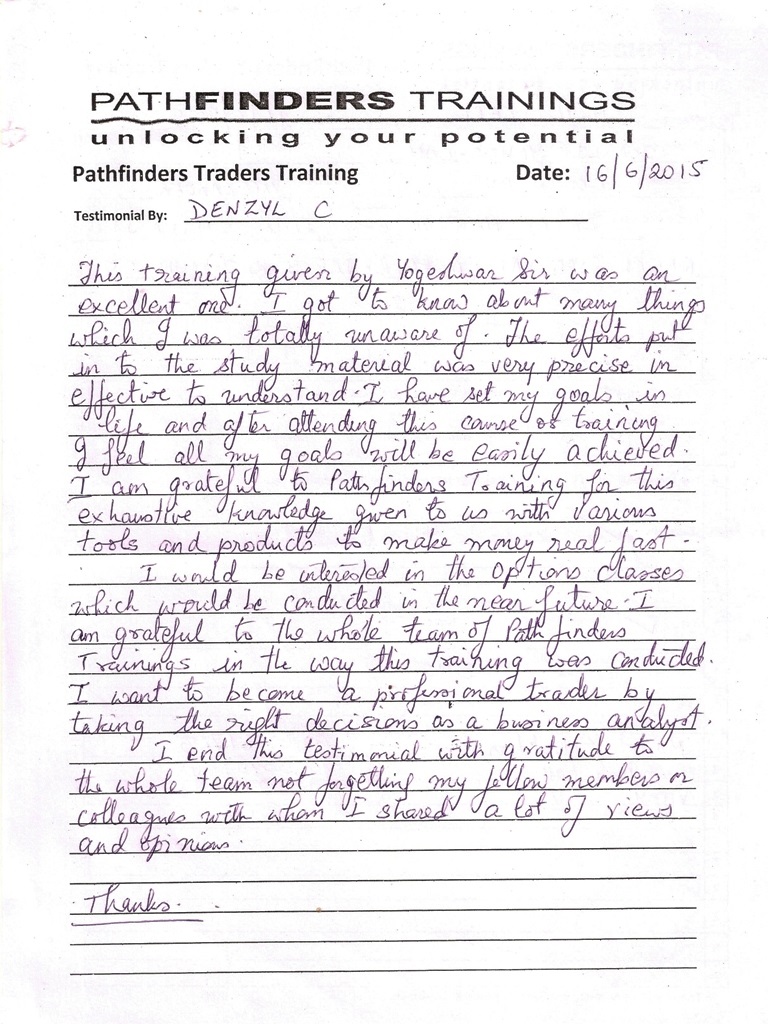 PATHFINDERS TRAININGS
unlocking your potential
Pathfinders Traders Training Date: 16/6/2015
Testimonial By: DENZYL C
This training given by Yogeshwar Sir was an
excellent one. I got to know about many things
which I was totally unaware of. The efforts put
in to the study material was very precise in
effective to understand. I have set my goals in
life and after attending this course or training
I feel all my goals will be easily achieved.
I am grateful to Pathfinders Training for this
exhaustive knowledge given to us with various
tools and products to make money real fast.
I would be interested in the Options Classes
which would be conducted in the near future. I
am grateful to the whole team of Path finders
Trainings in the way this training was conducted.
I want to become a professional trader by
taking the right decisions as a business analyst.
I end this testimonial with gratitude to
the whole team not forgetting my fellow members or
colleagues with whom I shared a lot of views
and opinions.
Thanks.